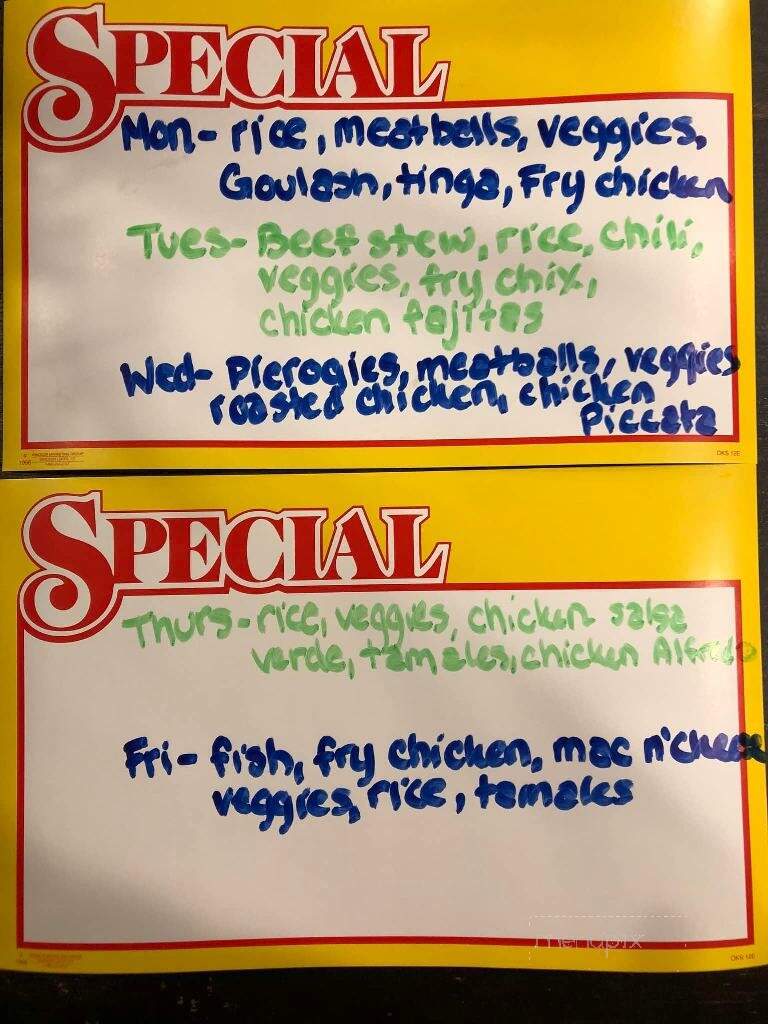 SPECIAL
Mon- rice, meatballs, veggies,
Goulash, tinga, Fry chicken
Tues- Beef stew, rice, chili,
veggies, fry chix,
chicken fajitas
Wed- Pierogies, meatballs, veggies
roasted chicken, chicken
Piccata
1966
DKS 12E
SPECIAL
Thurs- rice, veggies, chicken salsa
verde, tamales, chicken Alfredo
Fri- fish, fry chicken, mac n'cheese
veggies, rice, tamales
menupix
DKS 12E